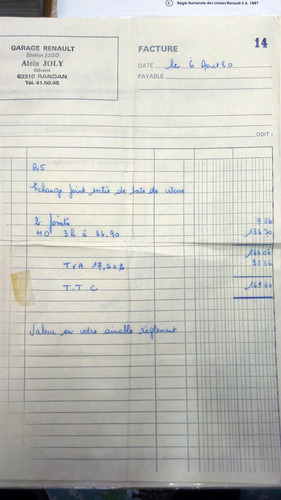 © Régie Nationale des Usines Renault S.A. 1981
GARAGE RENAULT
Station 1350
Alain JOLY
Gérant
63310 RANDAN
Tél. 41.50.48
FACTURE
14
DATE le 6 Aout 80
PAYABLE
DOIT :
R5
Echange joint sortie de boite de vitesse
2 joints 9 36
MO 3h à 44.90 134 70
144 06
TVA 17,60% 25 36
T.T.C 169 40
Valeur en votre aimable règlement